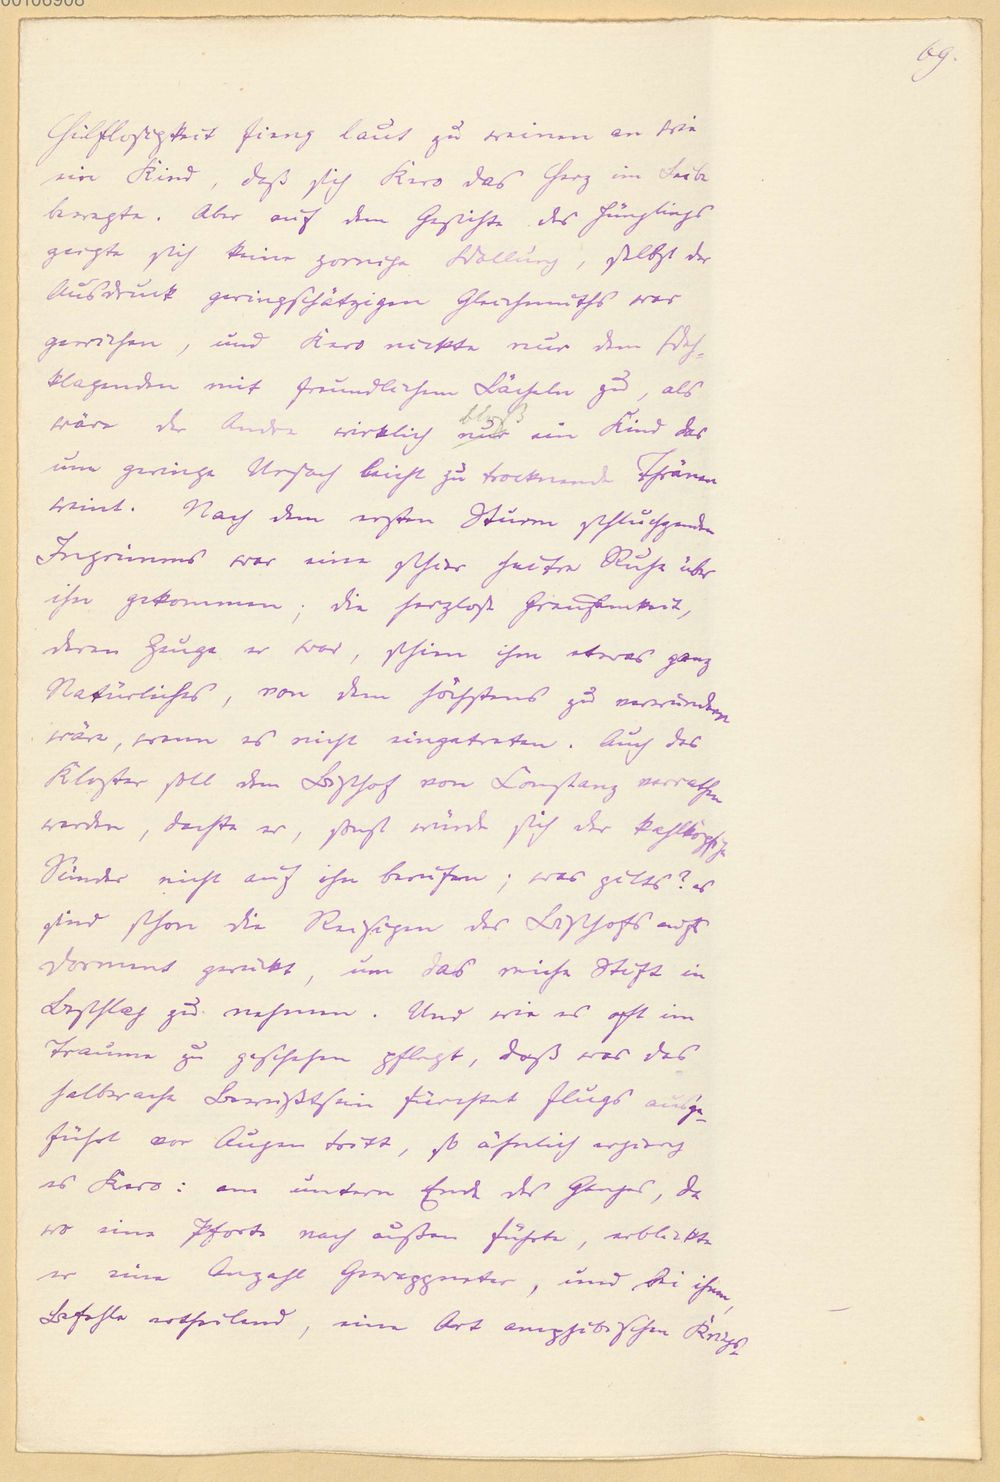 69.
Hülflosigkeit fieng laut zu weinen an wie
ein Kind, daß sich Kero das Herz im Leibe
bewegte. Aber auf dem Gesichte des Jünglings
zeigte sich keine zornige Wallung, selbst der
Ausdruck geringschätzigen Gleichmuths war
gewichen, und Kero nickte nur dem Weh-
klagenden mit freundlichem Lächeln zu, als
wäre der Andre wirklich nur bloß ein Kind das
um geringe Ursach leicht zu trocknende Thränen
weint. Nach dem ersten Sturm schluchzenden
Ingrimms war eine schier heitre Ruhe über
ihn gekommen; die herzlose Grausamkeit,
deren Zeuge er war, schien ihm etwas ganz
Natürliches, von dem höchstens zu verwundern
wäre, wenn es nicht eingetreten. Auch das
Kloster soll dem Bischof von Constanz verrathen
werden, dachte er, sonst würde sich der kahlköpfige
Sünder nicht auf ihn berufen; was gilts? es
sind schon die Reisigen des Bischofs aufs
Dorment gerückt, um das reiche Stift in
Beschlag zu nehmen. Und wie es oft im
Traume zu geschehen pflegt, daß was das
halbwache Bewußtsein fürchtet flugs ausge-
führt vor Augen tritt, so ähnlich ergieng
es Kero: am untern Ende des Ganges, da
wo eine Pforte nach außen führte, erblickte
er eine Anzahl Gewappneter, und bei ihnen,
Befehle ertheilend, eine Art amphibischen Kriegs-